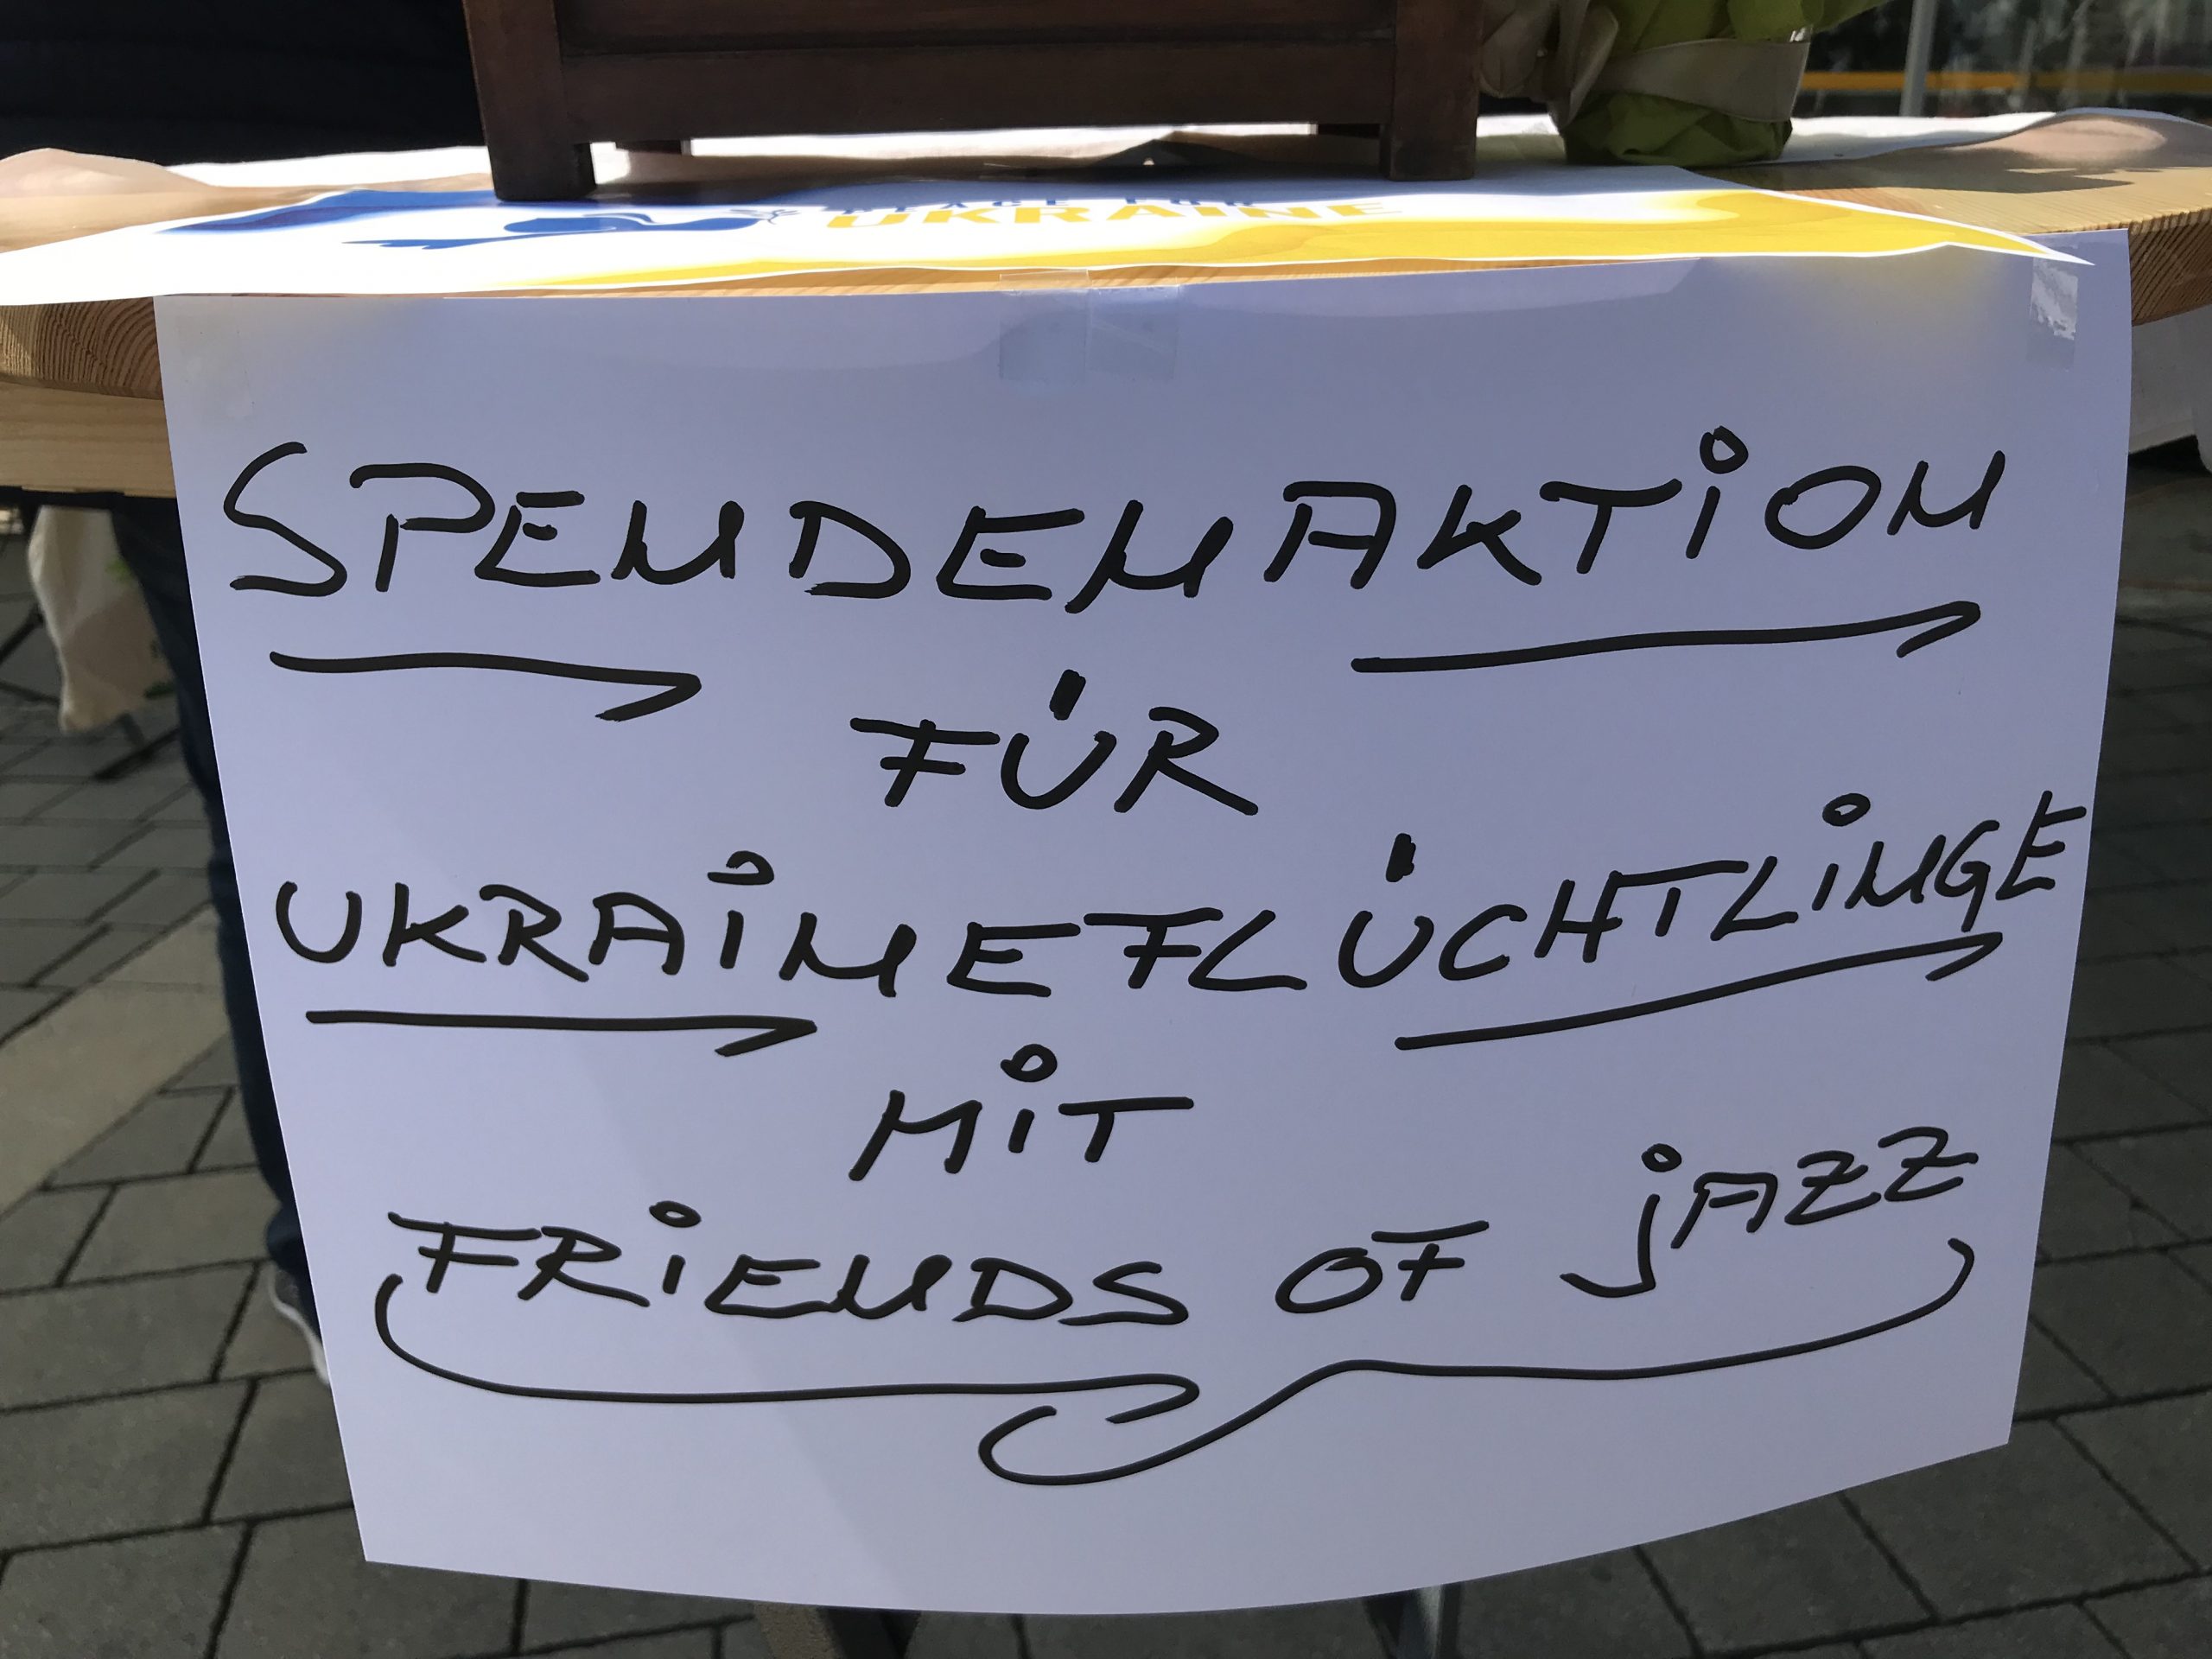 PEACE FOR
UKRAINE
SPENDENAKTiON
FÜR
UKRAiNEFLÜCHTLiNGE
MiT
FRiENDS OF jAZZ